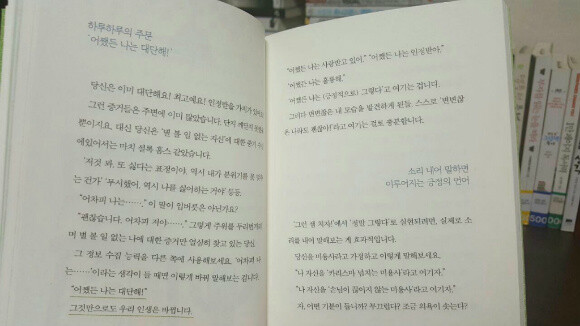 하루하루의 주문
'어쨌든 나는 대단해!'
당신은 이미 대단해요! 최고예요! 인정받을 가치가 있어요
그런 증거들은 주변에 이미 많았습니다. 단지 깨닫지 못했을
뿐이지요. 대신 당신은 '별 볼 일 없는 자신'에 대한 증거
에 있어서는 마치 셜록 홈스 같았습니다.
'저것 봐, 또 싫다는 표정이야. 역시 내가 분위기를 못
는 건가' '무시했어, 역시 나를 싫어하는 거야' 등등.
"어차피 나는……." 이 말이 입버릇은 아닌가요?
"괜찮습니다. 어차피 저야……." 그렇게 주위를 두리번거리
며 별 볼 일 없는 나에 대한 증거만 열심히 찾고 있는 당신.
그 정보 수집 능력을 다른 쪽에 사용해보세요. '어차피 나
는……'이라는 생각이 들 때면 이렇게 바꿔 말해보는 겁니다.
"어쨌든 나는 대단해!"
그것만으로도 우리 인생은 바뀝니다.
"어쨌든 나는 사랑받고 있어." "어쨌든 나는 인정받아."
"어쨌든 나는 훌륭해."
'어쨌든 나는 (긍정적으로) 그렇다'고 여기는 겁니다.
그러다 변변찮은 내 모습을 발견하게 된들, 스스로 '변변찮
은 나라도 괜찮아!'라고 여기는 걸로 충분합니다.
소리 내어 말하면
이루어지는 긍정의 언어
'그런 셈 치자'에서 '정말 그렇다'로 실현되려면, 실제로 소
리를 내어 말해보는 게 효과적입니다.
당신을 미용사라고 가정하고 이렇게 말해보세요.
"나 자신을 '카리스마 넘치는 미용사'라고 여기자."
"나 자신을 '손님이 끊이지 않는 미용사'라고 여기자."
자, 어떤 기분이 듭니까? 부끄럽다? 조금 의욕이 솟는다?